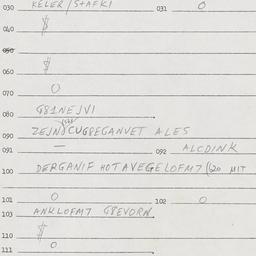 030 KELER/STAFKI 031 O
040 $
050
060 $
070 O
080 G81NEJVI
090 ZEJN CUGREGANVET ALES
091 — 092 ALCDINK
100 DERGANIF HOTAVEGELOFM7 (60 MIT
101 O 102 O
103 ANKLOFM7 G8EVORN
110 $
111 O